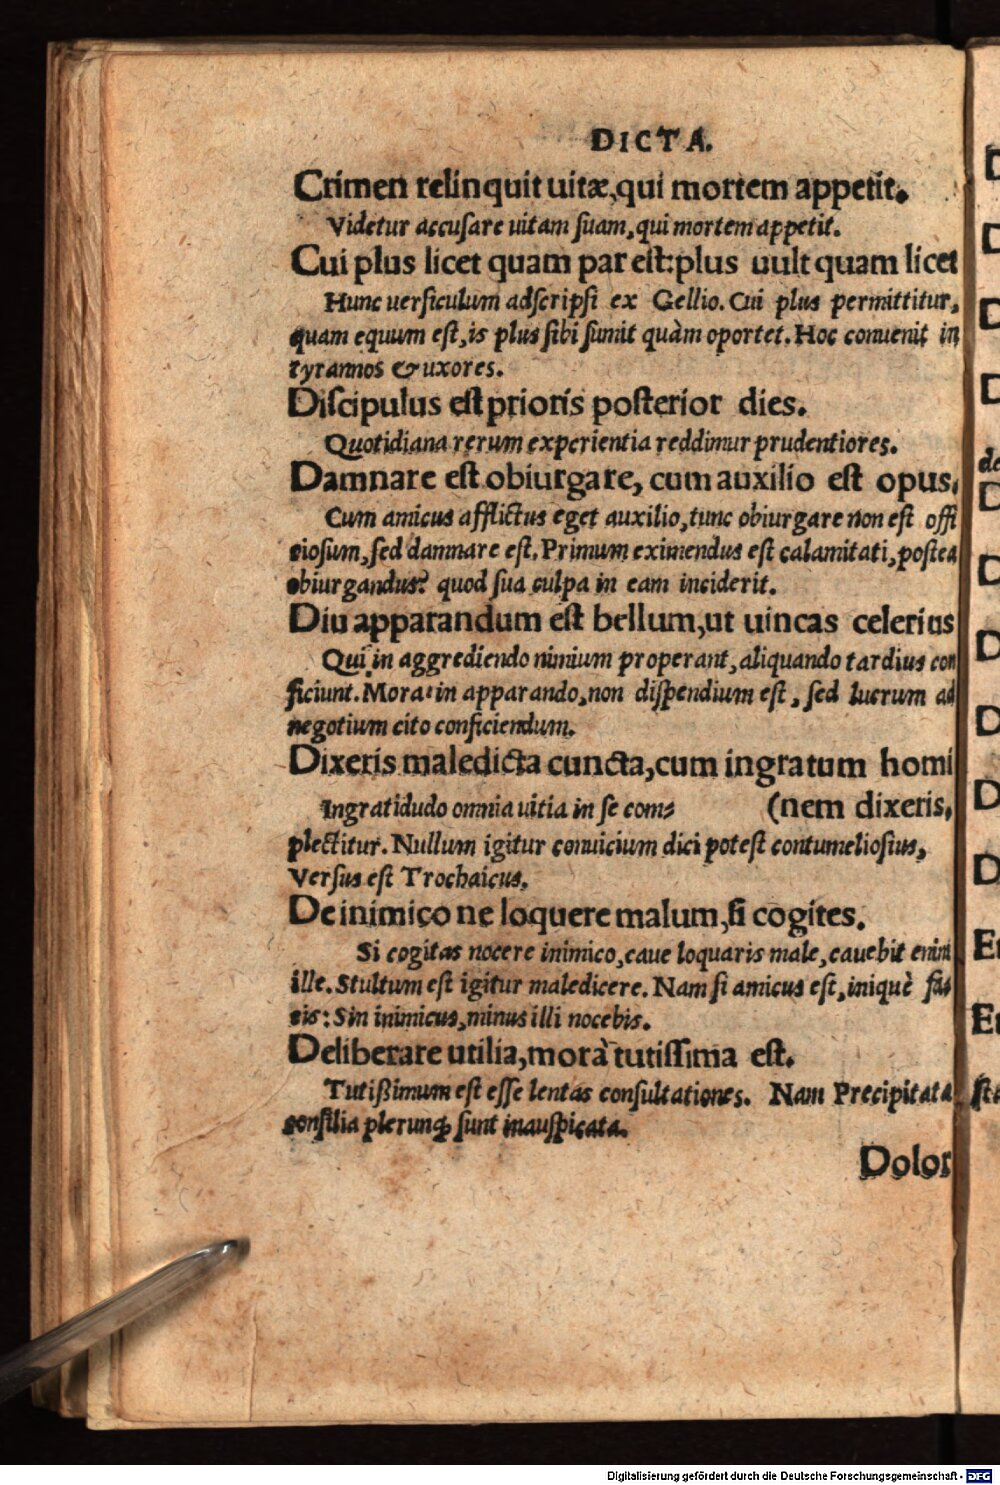 DICTA.
Crimen relinquit uitæ, qui mortem appetit.
Videtur accusare uitam suam, qui mortem appetit.
Cui plus licet quam par est: plus uult quam licet
Hunc uersiculum adscripsi ex Gellio. Cui plus permittitur,
quam equum est, is plus sibi sumit quàm oportet. Hoc conuenit in
tyrannos & uxores.
Discipulus est prioris posterior dies.
Quotidiana rerum experientia reddimur prudentiores.
Damnare est obiurgare, cum auxilio est opus.
Cum amicus afflictus eget auxilio, tunc obiurgare non est offi
ciosum, sed damnare est. Primum eximendus est calamitati, postea
obiurgandus? quod sua culpa in eam inciderit.
Diu apparandum est bellum, ut uincas celerius
Qui in aggrediendo nimium properant, aliquando tardius con
ficiunt. Mora in apparando, non dispendium est, sed lucrum ad
negotium cito conficiendum.
Dixeris maledicta cuncta, cum ingratum homi
Ingratidudo omnia uitia in se com= (nem dixeris,
plectitur. Nullum igitur conuicium dici potest contumeliosius,
Versus est Trochaicus.
De inimico ne loquere malum, si cogites.
Si cogitas nocere inimico, caue loquaris male, cauebit enim
ille. Stultum est igitur maledicere. Nam si amicus est, iniquè fa=
cis: Sin inimicus, minus illi nocebis.
Deliberare utilia, mora tutissima est.
Tutißimum est esse lentas consultationes. Nam Precipitata
consilia plerunq; sunt inauspicata.
Dolor
Digitalisierung gefördert durch die Deutsche Forschungsgemeinschaft - DFG